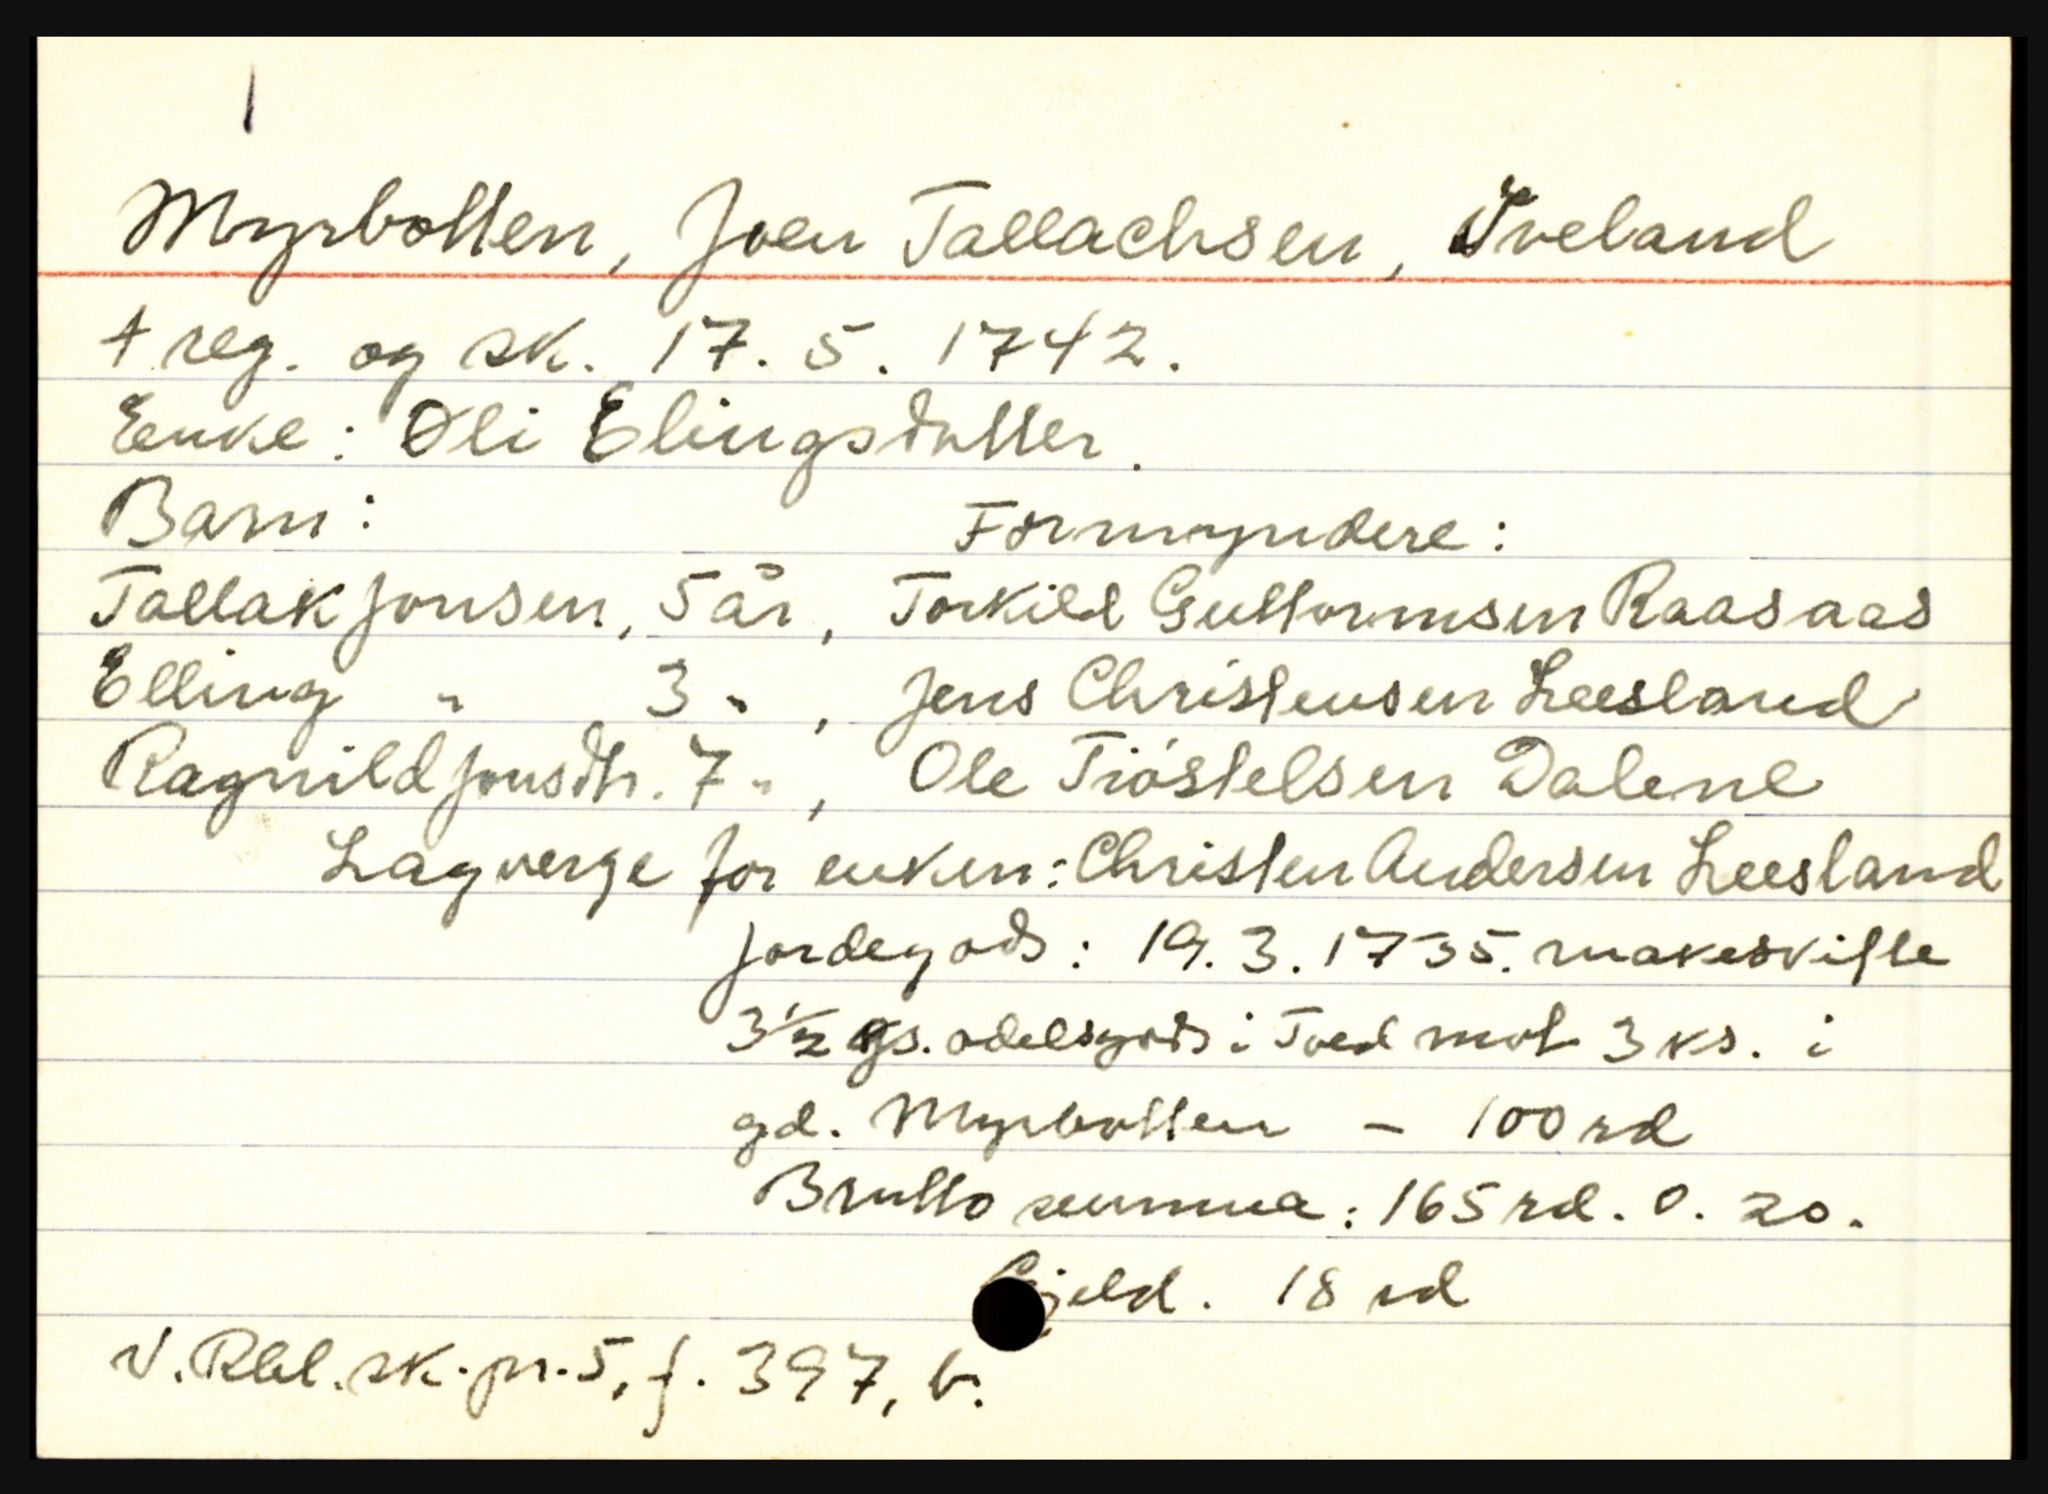 1
Myrbotten, Joen Tallachsen, Iveland
† reg. og sk. 17. 5. 1742.
Enke: Oli Elingsdatter.
Barn: Formyndere:
Tallak Jonsen, 5 år, Torkild Guttormsen Raasaas
Elling " 3 ", Jens Christensen Leesland
Ragnild Jonsdtr. 7 ", Ole Tiöstelsen Dalene
Lagverge for enken: Christen Andersen Leesland
Jordegods: 19. 3. 1735. makeskifte
3½ gs. odelsgods i Tved mot 3 ks. i
gd. Myrbotten - 100 rd
Brutto summa: 165 rd. 0. 20.
Gjeld. 18 rd
V. Rbl. sk. pr. 5, f. 397, b.